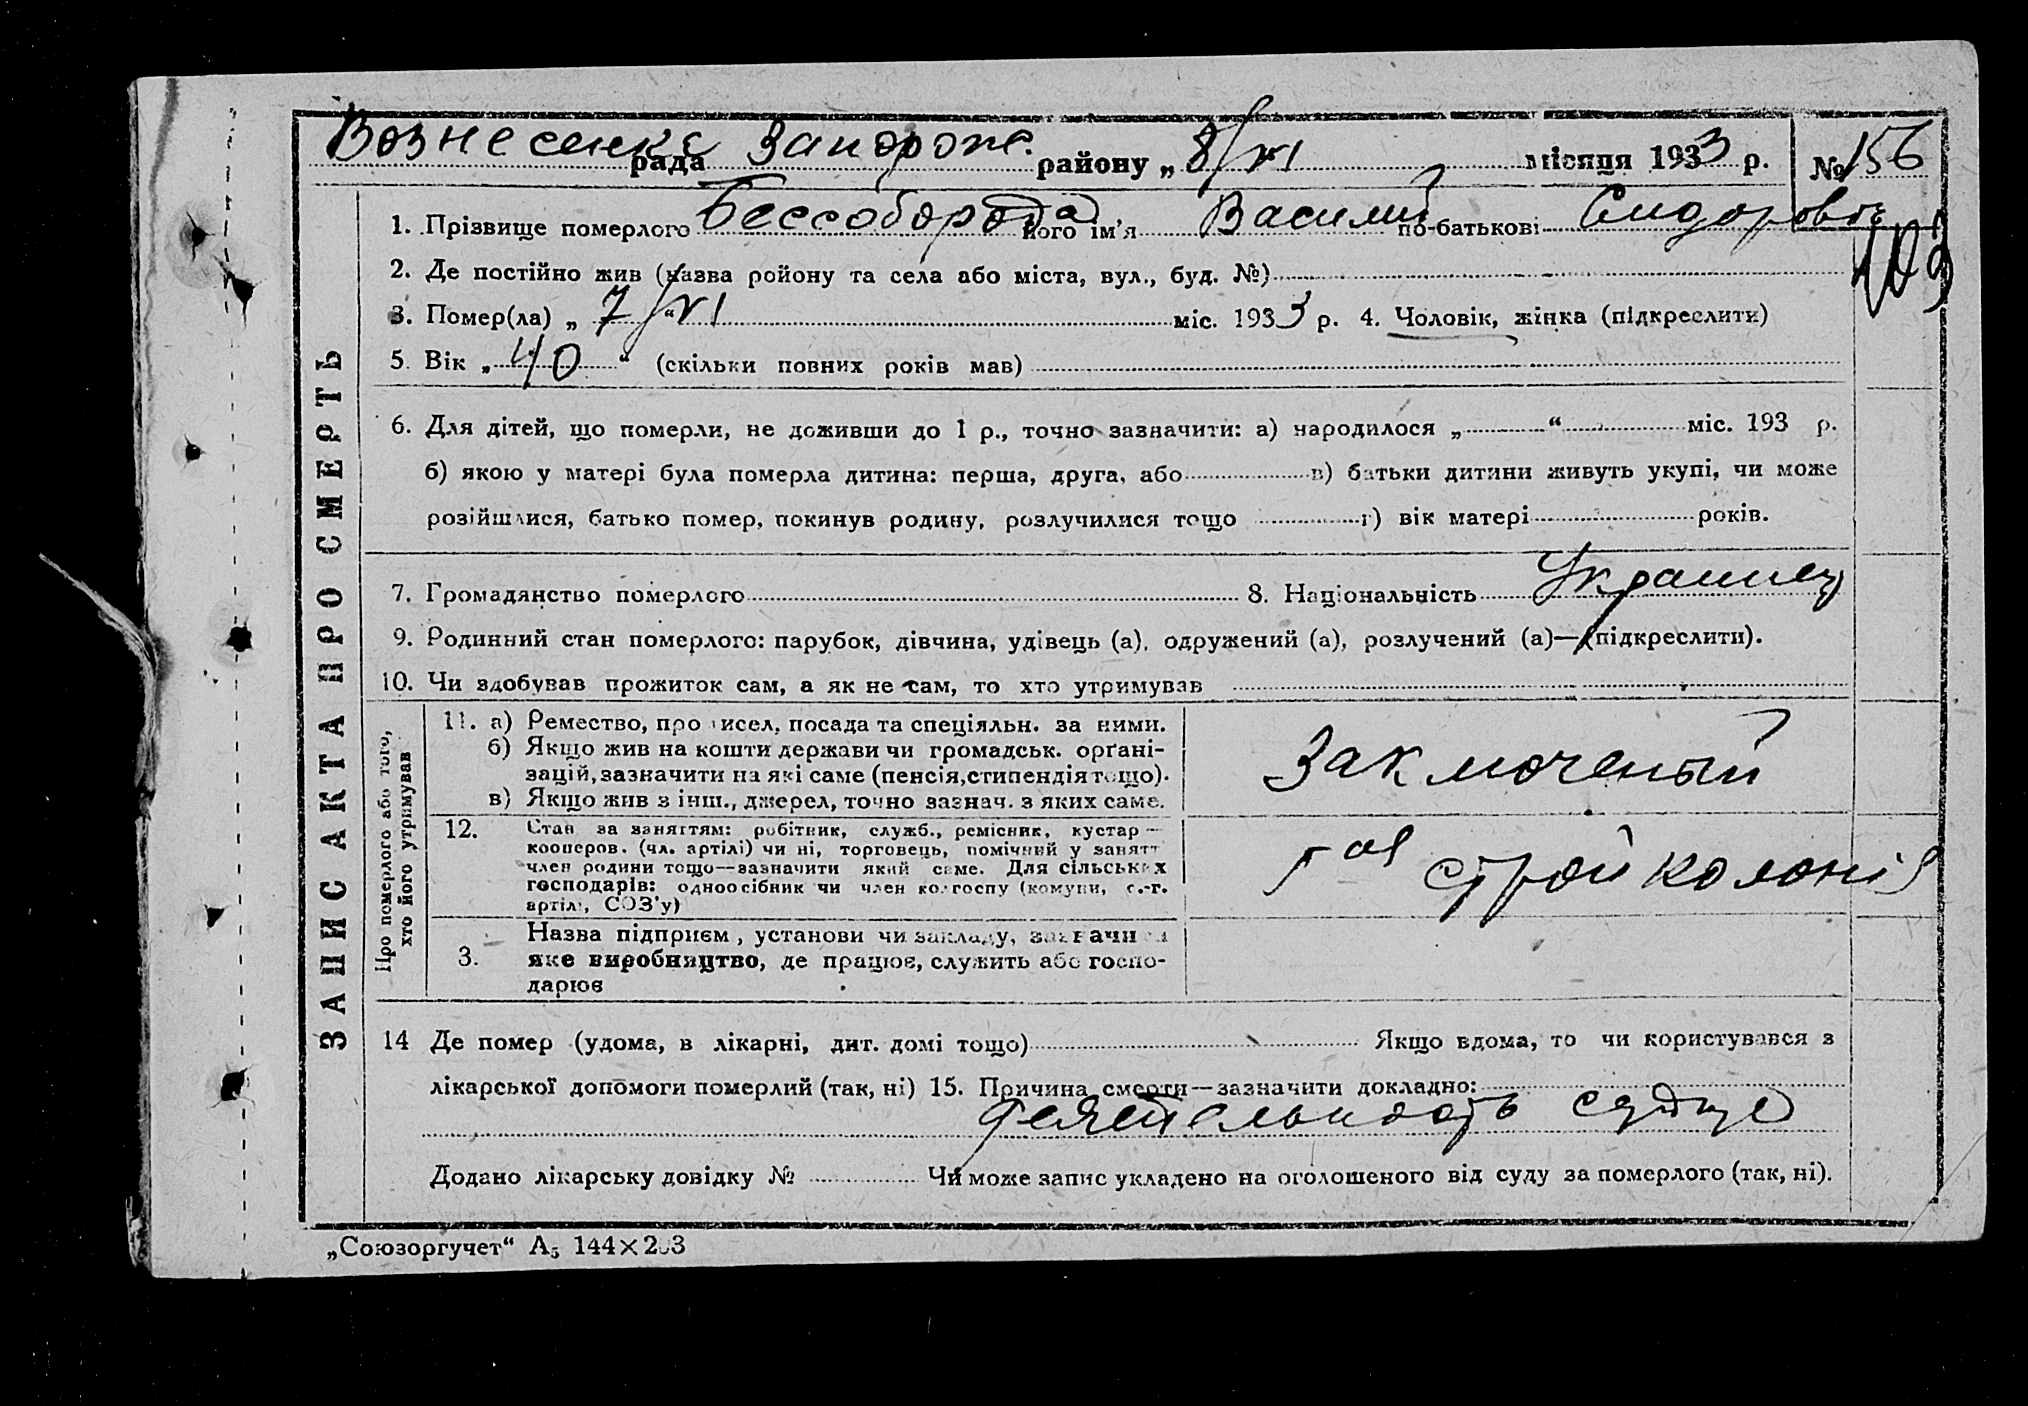 Вознесенка рада Запорож. району „ 8/VI місяця 1933 р. № 156
1. Прізвище померлого Бессоборода його ім'я Василий по-батькові Сидорович
2. Де постійно жив (назва ройону та села або міста, вул., буд. №)
3. Помер(ла) „ 7 “ VI міс. 1933 р. 4. Чоловік, жінка (підкреслити)
5. Вік „ 40 “ (скільки повних років мав)
6. Для дітей, що померли, не доживши до 1 р., точно зазначити: а) народилося „ “ міс. 193 р.
б) якою у матері була померла дитина: перша, друга, або в) батьки дитини живуть укупі, чи може
розійшлися, батько помер, покинув родину, розлучилися тощо г) вік матері років.
7. Громадянство померлого 8. Національність Украинец
9. Родинний стан померлого: парубок, дівчина, удівець (а), одружений (а), розлучений (а)—(підкреслити).
10. Чи здобував прожиток сам, а як не сам, то хто утримував
ЗАПИС АКТА ПРО СМЕРТЬ
Про померлого або того, хто його утримував
11. а) Ремество, промисел, посада та спеціяльн. за ними.
б) Якщо жив на кошти держави чи громадськ. орґані-
зацій, зазначити на які саме (пенсія, стипендія тощо).
в) Якщо жив з інш., джерел, точно зазнач. з яких саме.
Заключеный
12. Стан за заняттям: робітник, служб., ремісник, кустар —
кооперов. (чл. артілі) чи ні, торговець, помічний у занятт
член родини тощо—зазначити який саме. Для сільських
господарів: одноосібник чи член колгоспу (комуни, с.-г.
артілі, СОЗ'у)
1ая стройколонія
3. Назва підприєм, установи чи закладу, зазначити
яке виробництво, де працює, служить або госпо-
дарює
14 Де помер (удома, в лікарні, дит. домі тощо) Якщо вдома, то чи користувався з
лікарської допомоги померлий (так, ні) 15. Причина смерти—зазначити докладно:
деятельность сердца
Додано лікарську довідку № Чи може запис укладено на оголошеного від суду за померлого (так, ні).
„Союзоргучет“ А₅ 144×203